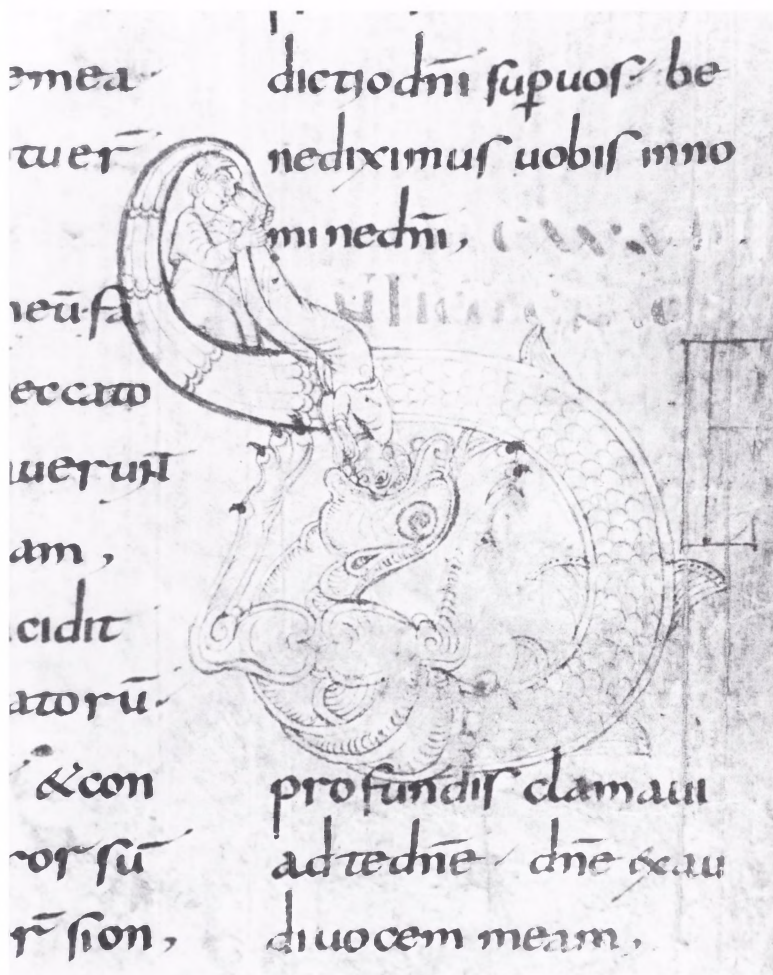 emea
tuer̄
neū fa
eccato
uerunt
am,
cidit
atorū
&con
ror sū
r̄ sion,
dictio dn̄i sup̄ uos be
nediximus uobis inno
mine dn̄i,
profundis clamaui
ad te dn̄e dn̄e exau
di uocem meam,